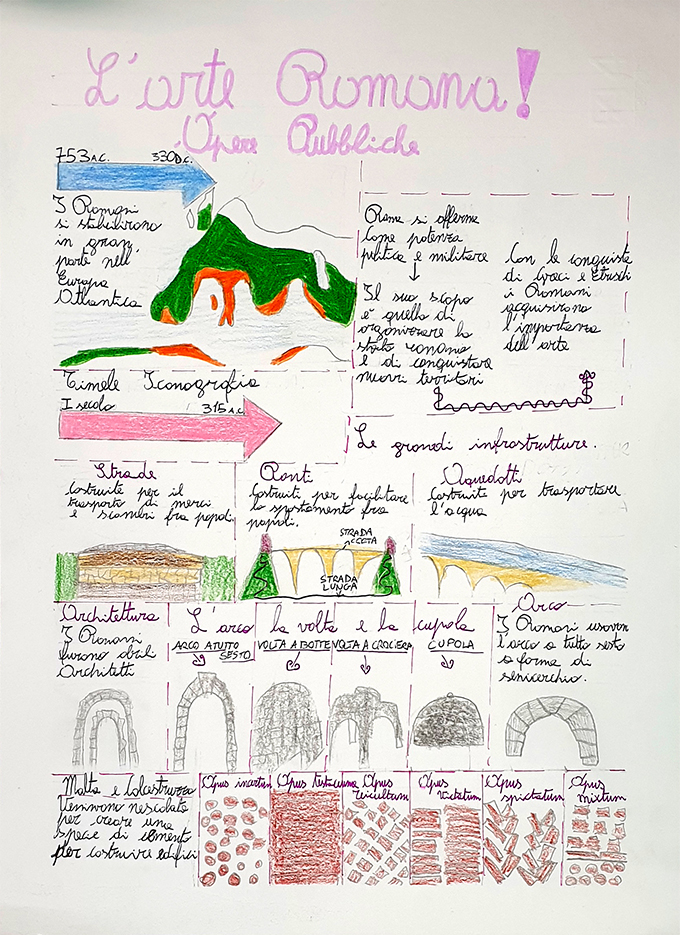 L'arte Romana!
Opere Pubbliche
753 A.C. 330 D.C.
I Romani
si stabilirono
in gran
parte nell'
Europa
Atlantica
Roma si afferma
come potenza
politica e militare
↓
Il suo scopo
è quello di
organizzare lo
stato romano
e di conquistare
nuovi territori
Con le conquiste
di Greci e Etruschi
i Romani
acquisirono
l'importanza
dell'arte
Timele Iconografia
I secolo 315 A.C.
Le grandi infrastrutture.
Strade
Costruite per il
trasporto di merci
e scambi fra popoli,
Ponti
Costruiti per facilitare
lo spostamento fra
popoli.
STRADA
STRADA
LUNGA
Aquedotti
Costruite per trasportare
l'acqua
Architettura
I Romani
furono abili
Architetti
L'arco la volta e la cupola
ARCO A TUTTO
SESTO
VOLTA A BOTTE
VOLTA A CROCIERA
CUPOLA
Arco
I Romani usavano
l'arco a tutto sesto
a forma di
semicerchio.
Malta e Calcestruzzo
venivano mescolate
per creare una
spece di cemento
per costruire edifici
Opus incertum
Opus testaceum
Opus
reticulatum
Opus
vittatum
Opus
spicatum
Opus
mixtum